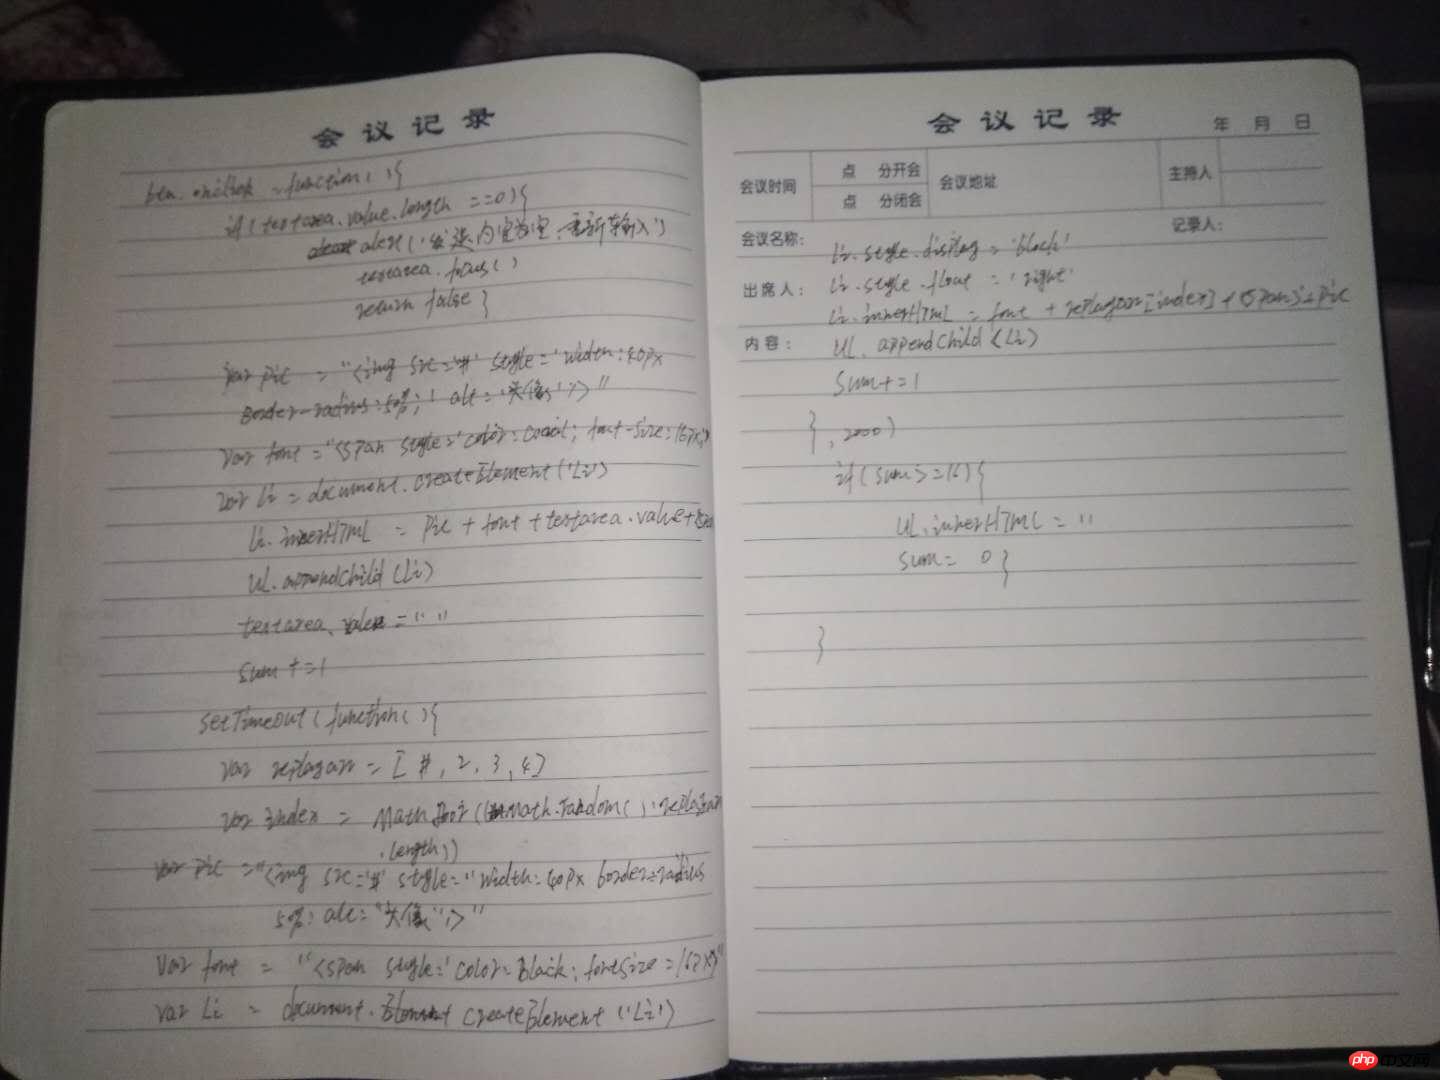 会议记录
btn.onclick = function(){
if(textarea.value.length ==0){
alert('发送内容为空,重新输入')
textarea.focus()
return false }
var pic = "<img src='#' style='width:40px
border-radius:50%;' alt='头像'/>"
var font = "<span style='color:coral; font-size:16px;'>
var Li = document.createElement('Li')
Li.innerHTML = pic + font + textarea.value +
UL.appendChild(Li)
textarea.value = " "
sum +=1
setTimeout(function(){
var replayarr = [#, 2, 3, 4]
var index = Math.floor(Math.random()*replayarr
.length))
var pic ="<img src='#' style="width:40px border-radius
50%: alt="头像"/>"
var font = "<span style='color:Black; fontsize=16px>"
var Li = document. createElement('Li')
会议记录
年 月 日
会议时间 点 分开会 会议地址 主持人
点 分闭会
会议名称: 记录人:
Li.style.display = 'block'
出席人: Li.style.float = 'right'
Li.innerHTML = font + replayarr[index] + (span)+pic
内容: UL.appendChild(Li)
sum+=1
},2000)
if(sum>=16){
UL.innerHTML = ''
sum= 0}
}
php中文网